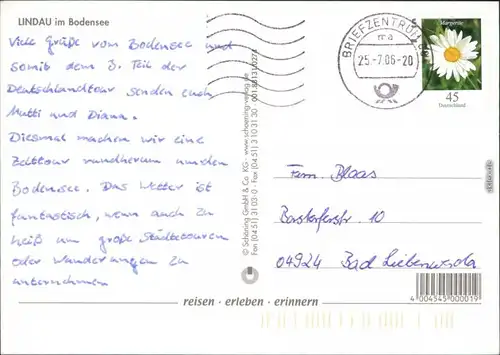 LINDAU im Bodensee
Viele Grüße vom Bodensee und
somit dem 3. Teil der
Deutschlandtour senden euch
Mutti und Diana.
Diesmal machen wir eine
Zelttour rundherum um den
Bodensee. Das Wetter ist
fantastisch, wenn auch zu
heiß um große Städtetouren
oder Wanderungen zu
unternehmen
© Schöning GmbH & Co. KG · www.schoening-verlag.de
Fon (04 51) 31 03-0 · Fax (04 51) 3 10 31 30
BRIEFZENTRUM
ma
25.-7.06-20
Margerite
45
Deutschland
Fam. Blaas
10
04924 Bad Liebenwerda
4 004545 000019
reisen · erleben · erinnern